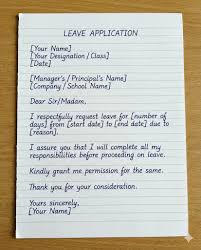 LEAVE APPLICATION
[Your Name]
[Your Designation / Class]
[Date]
[Manager's / Principal's Name]
[Company / School Name]
Dear Sir/Madam,
I respectfully request leave for [number of
days] from [start date] to [end date] due to
[reason].
I assure you that I will complete all my
responsibilities before proceeding on leave.
Kindly grant me permission for the same.
Thank you for your consideration.
Yours sincerely,
[Your Name]